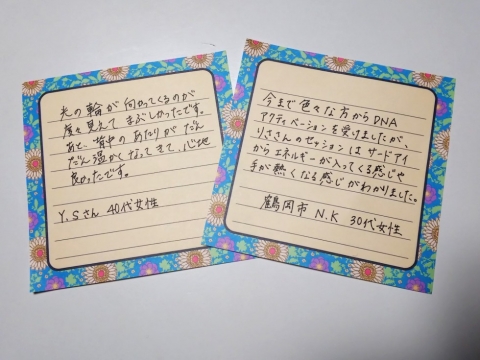 光の輪が向かってくるのが
度々見えて まぶしかったです。
あと、背中のあたりがだん
だん温かくなってきて、心地
良かったです。
Y.Sさん 40代女性
今まで色々な方からDNA
アクティベーションを受けましたが、
りささんのセッションは サードアイ
からエネルギーが入ってくる感じや
手が熱くなる感じがわかりました。
鶴岡市 N.K 30代女性